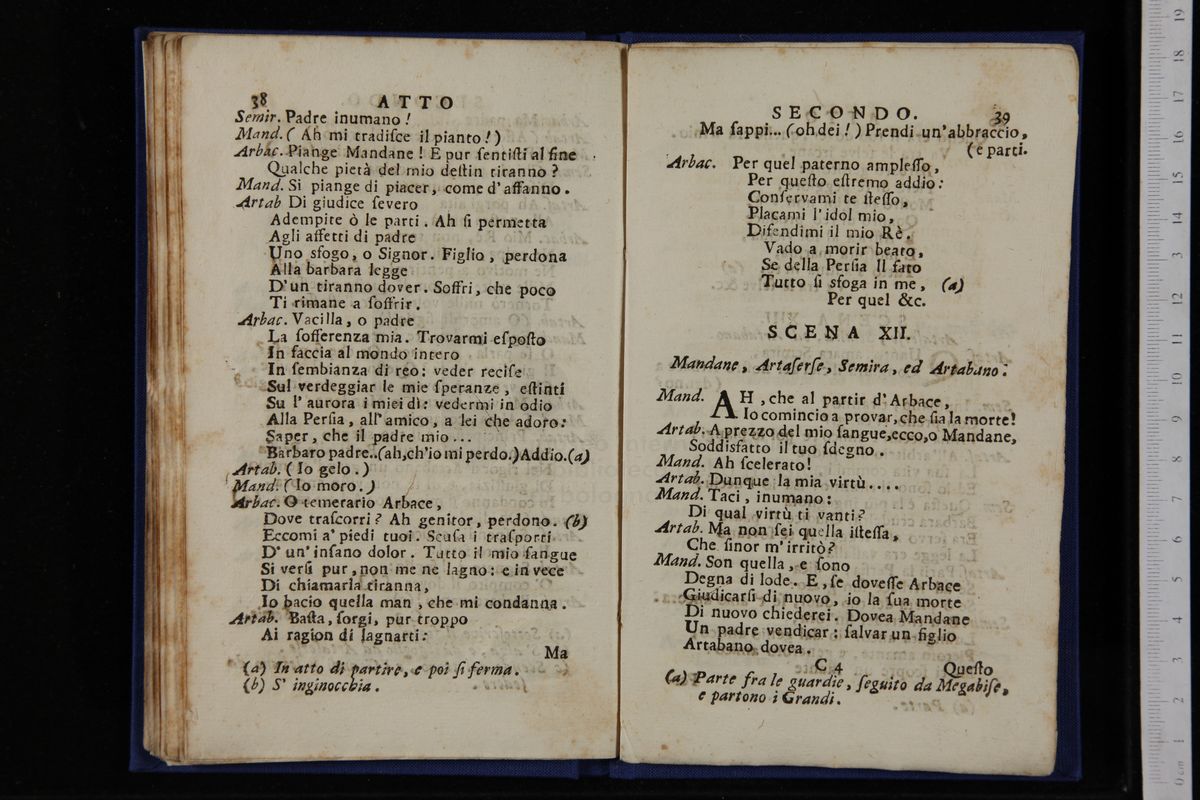 38 ATTO
Semir. Padre inumano!
Mand. (Ah mi tradiſce il pianto!)
Arbac. Piange Mandane! E pur ſentiſti al fine
Qualche pietà del mio deſtin tiranno?
Mand. Si piange di piacer, come d'affanno.
Artab Di giudice ſevero
Adempite ò le parti. Ah ſi permetta
Agli affetti di padre
Uno sfogo, o Signor. Figlio, perdona
Alla barbara legge
D'un tiranno dover. Soffri, che poco
Ti rimane a ſoffrir.
Arbac. Vacilla, o padre
La ſofferenza mia. Trovarmi eſpoſto
In faccia al mondo intero
In ſembianza di reo: veder reciſe
Sul verdeggiar le mie ſperanze, eſtinti
Su l'aurora i miei dì: vedermi in odio
Alla Perſia, all'amico, a lei che adoro:
Saper, che il padre mio...
Barbaro padre..(ah,ch'io mi perdo.)Addio.(a)
Artab. (Io gelo.)
Mand. (Io moro.)
Arbac. O temerario Arbace,
Dove traſcorri? Ah genitor, perdono. (b)
Eccomi a' piedi tuoi. Scuſa i traſporti
D'un'inſano dolor. Tutto il mio ſangue
Si verſi pur, non me ne lagno: e in vece
Di chiamarla tiranna,
Io bacio quella man, che mi condanna.
Artab. Baſta, ſorgi, pur troppo
Ai ragion di lagnarti:
Ma
(a) In atto di partire, e poi ſi ferma.
(b) S'inginocchia.
SECONDO. 39
Ma ſappi... (oh dei!) Prendi un'abbraccio,
(e parti.
Arbac. Per quel paterno ampleſſo,
Per queſto eſtremo addio:
Conſervami te ſteſſo,
Placami l'idol mio,
Difendimi il mio Rè.
Vado a morir beato,
Se della Perſia Il fato
Tutto ſi sfoga in me, (a)
Per quel &c.
SCENA XII.
Mandane, Artaſerſe, Semira, ed Artabano.
Mand. AH, che al partir d'Arbace,
Io comincio a provar, che ſia la morte!
Artab. A prezzo del mio ſangue,ecco,o Mandane,
Soddisfatto il tuo ſdegno.
Mand. Ah ſcelerato!
Artab. Dunque la mia virtù....
Mand. Taci, inumano:
Di qual virtù ti vanti?
Artab. Ma non ſei quella iſteſſa,
Che ſinor m'irritò?
Mand. Son quella, e ſono
Degna di lode. E, ſe doveſſe Arbace
Giudicarſi di nuovo, io la ſua morte
Di nuovo chiederei. Dovea Mandane
Un padre vendicar: ſalvar un figlio
Artabano dovea.
C 4 Queſto
(a) Parte fra le guardie, ſeguito da Megabiſe,
e partono i Grandi.